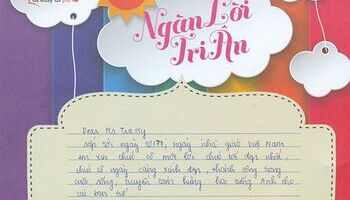 as easy as pie
Ngàn Lời
Tri Ân
Dear Ms Tra My
sắp tới ngày 20/11, ngày nhà giáo Việt Nam
em xin chúc cô mọi lời chúc tốt đẹp nhất,
chúc cô ngày càng xinh đẹp, thành công trong
cuộc sống, truyền cảm hứng học tiếng Anh cho
các bạn trẻ